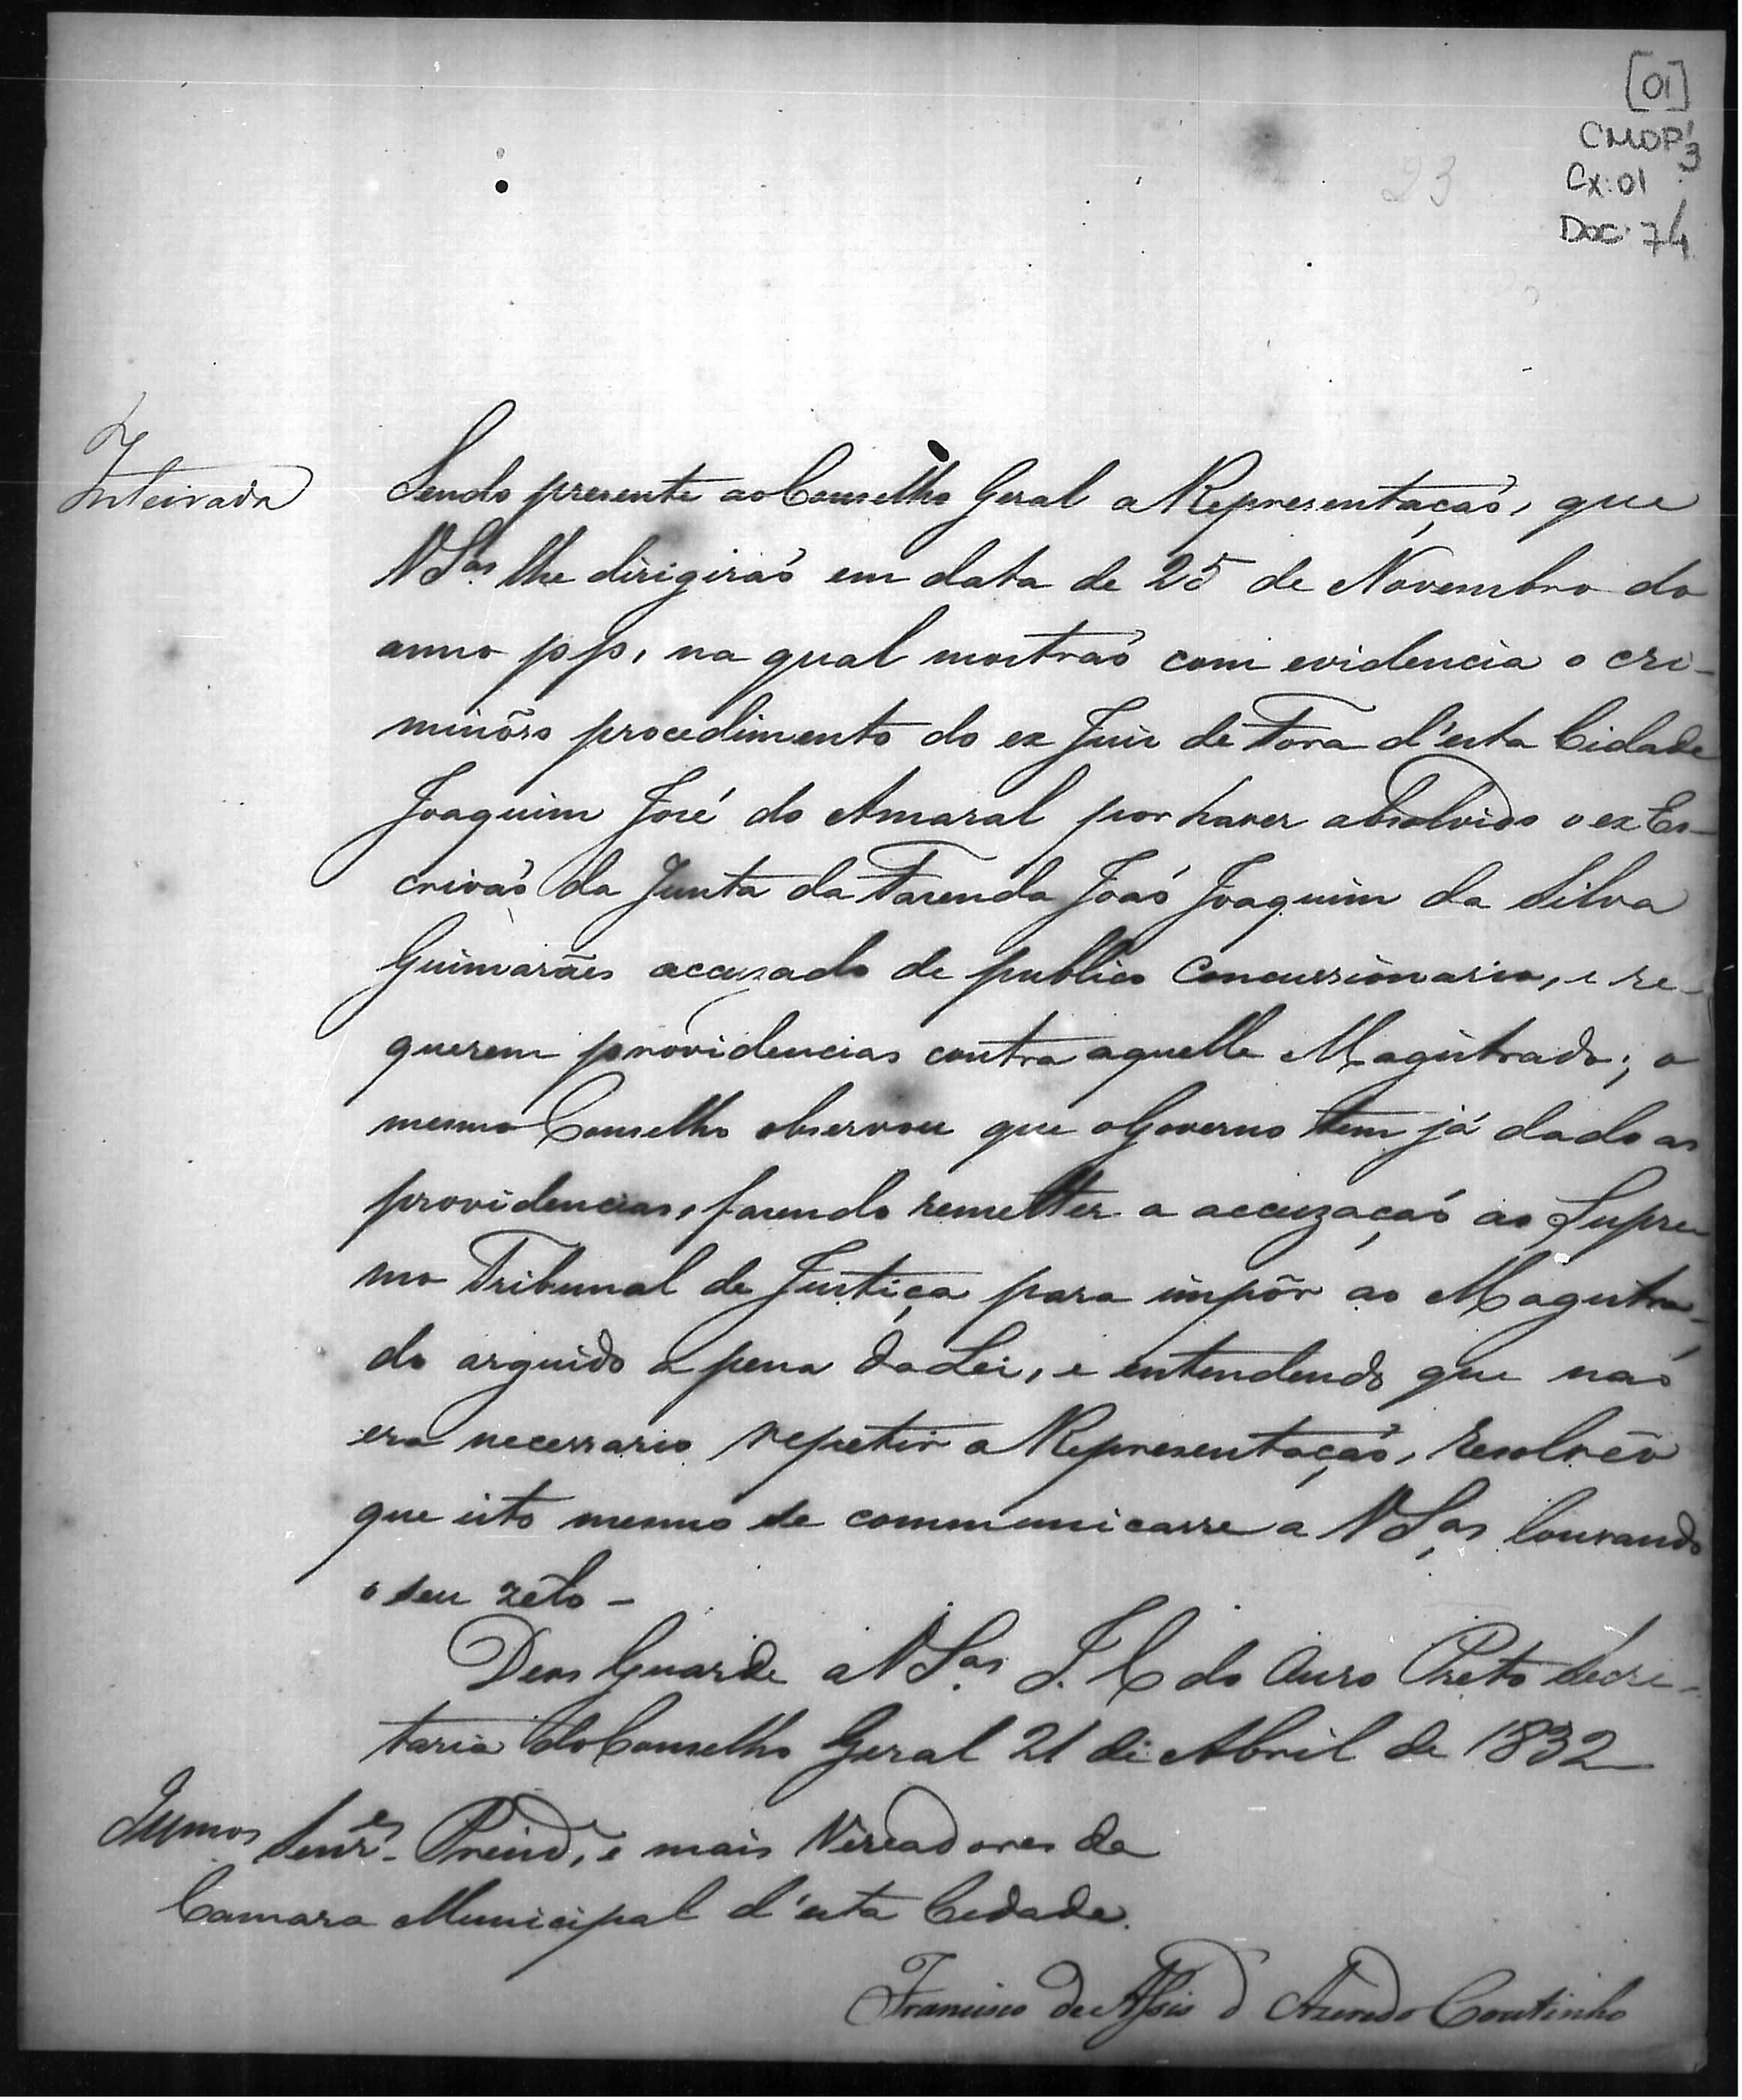 [01]
CMOP 3
Cx: 01
Doc: 74
23
Inteirada
Sendo presente ao Conselho Geral a Representação, que
VSas lhe dirigirão em data de 25 de Novembro do
anno pp, na qual mostrão com evidencia o cri-
minõso procedimento do ex Juiz de Fora d'esta Cidade
Joaquim José do Amaral por haver absolvido o ex Es-
crivão da Junta da Fazenda João Joaquim da Silva
Guimarães accuzado de publico concussionario, e re-
querem providencias contra aquelle Magistrado; o
mesmo Conselho observou que o Governo tem já dado as
providencias, fazendo remetter a accuzação ao Supre-
mo Tribunal de Justiça para impôr ao Magistra-
do arguido a pena da Lei, e entendendo que não
era necessario repetir a Representação, resolvêo
que isto mesmo se communicasse a VSas louvando
o seu zêlo -
Deos Guarde a VSas I. C do Ouro Preto Secre-
taria do Conselho Geral 21 de Abril de 1832
Illmos Senres Presid, e mais Vereadores da
Camara Municipal d'esta Cidade.
Francisco de Assis d' Azeredo Coutinho